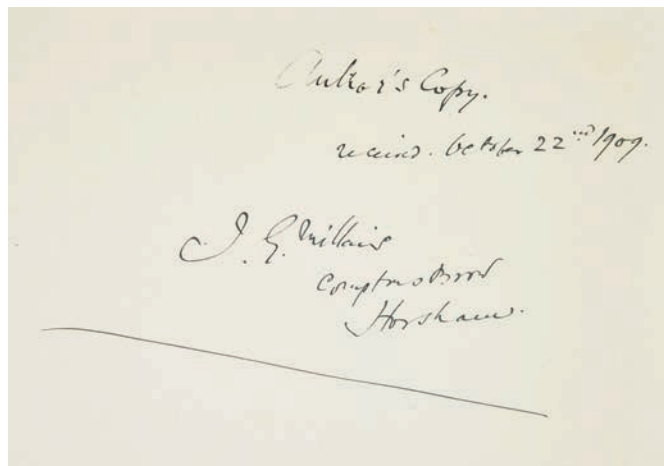 Author's Copy.
received. October 22nd 1909.
J. G. Millais
Comptons Brow
Horsham.